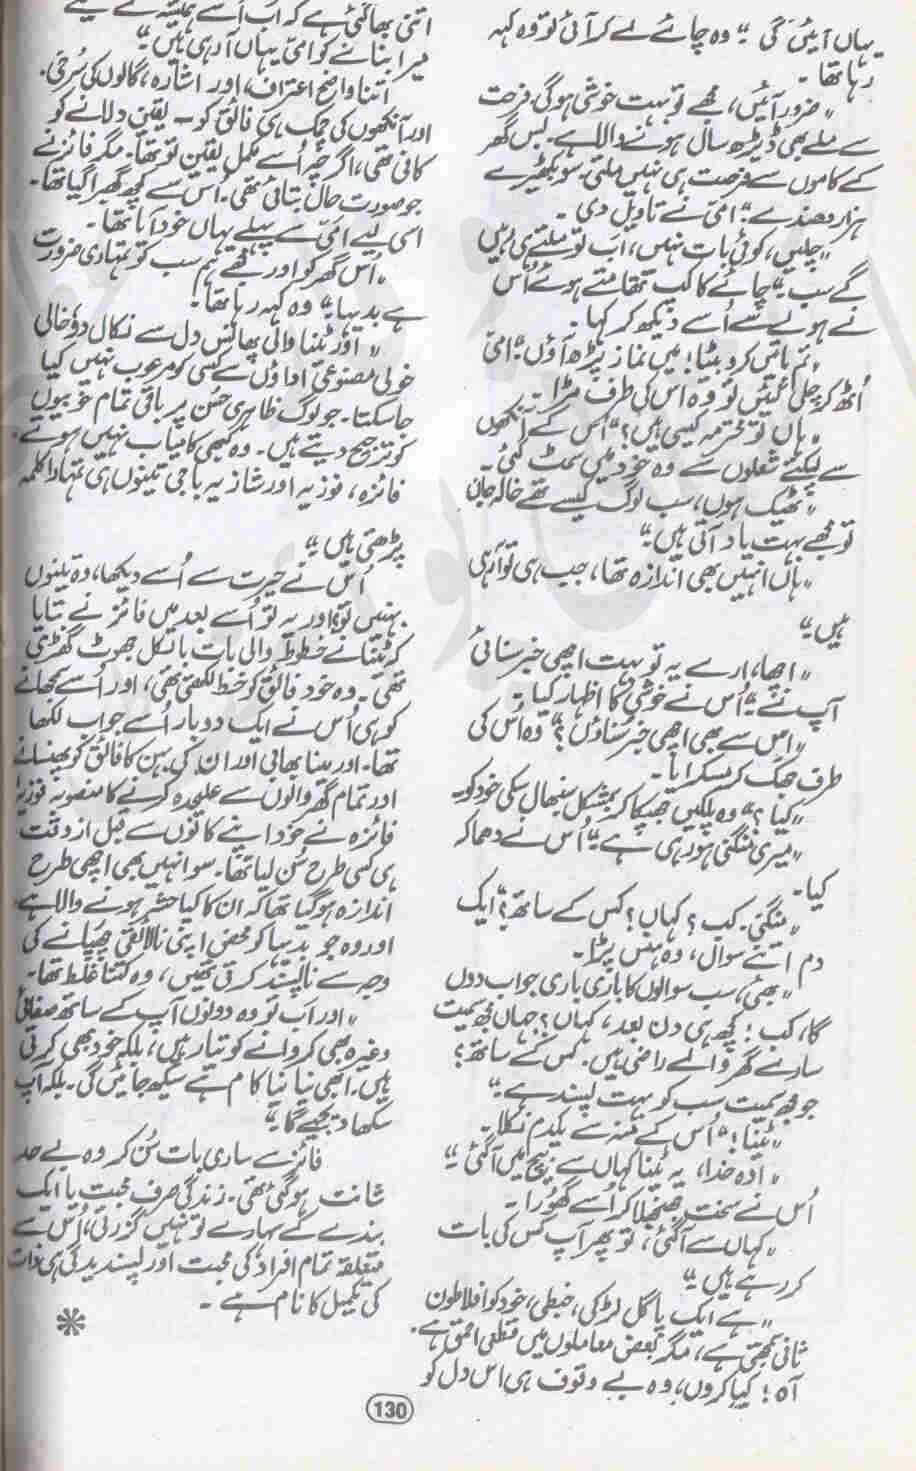 یہاں آئیں گی۔“ وہ چائے لے کر آئی تو وہ کہہ
رہا تھا۔
”ضرور آئیں، مجھے تو بہت خوشی ہوگی فرحت
سے ملے بھی ڈیڑھ سال ہونے والا ہے۔ بس گھر
کے کاموں سے فرصت ہی نہیں ملتی۔ سو بکھیڑے
ہزار دھندے“ امی نے تاویل دی۔
”چلیں، کوئی بات نہیں، اب تو ملتے ہی رہیں
گے سب“ چائے کا کپ تھامتے ہوئے اُس
نے ہولے سے اُسے دیکھ کر کہا۔
”تم باتیں کرو بیٹا! میں نماز پڑھ آؤں“ امی
اُٹھ کر چلی گئیں تو وہ اس کی طرف مڑا۔
”ہاں تو محترمہ کیسی ہیں؟“ اُس کے آنکھوں
سے لپکتے شعلوں سے وہ خود میں سمٹ گئی۔
”ٹھیک ہوں، سب لوگ کیسے تھے خالہ جانی
تو مجھے بہت یاد آتی ہیں“
”ہاں انہیں بھی اندازہ تھا، جب ہی تو آرہی
ہیں“
”اچھا، ارے یہ تو بہت اچھی خبر سنائی
آپ نے“ اُس نے خوشی کا اظہار کیا۔
”اس سے بھی اچھی خبر سناؤں؟“ وہ اُس کی
طرف جھک کر مسکرایا۔
”کیا؟“ وہ پلکیں جھپکا کر بمشکل سنبھال سکی خود کو۔
”میری منگنی ہو رہی ہے“ اُس نے دھماکہ
کیا۔
”منگنی۔ کب؟ کہاں؟ کس کے ساتھ؟“ ایک
دم اتنے سوال، وہ ہنس پڑا۔
”بھئی، سب سوالوں کا باری باری جواب دوں
گا، کب! کچھ ہی دن بعد، کہاں؟ جہاں مجھ سمیت
سارے گھر والے راضی ہیں۔ کس کے ساتھ؟
جو مجھ سمیت سب کو بہت پسند ہے“
”ٹینا!“ اُس کے منہ سے یکدم نکلا۔
”اوہ خدا، یہ ٹینا کہاں سے بیچ میں آگئی“
اُس نے سخت جھنجلا کر اُسے گھورا۔
”کہاں سے آگئی، تو پھر آپ کس کی بات
کر رہے ہیں“
”ہے ایک پاگل لڑکی، خبطی، خود کو افلاطون
ثانی سمجھتی ہے، مگر بعض معاملوں میں قطعی احمق ہے۔
آہ! کیا کروں، وہ بے وقوف ہی اس دل کو
اتنی بھا گئی ہے کہ اب اُسے ہمیشہ کے لیے
میرا بنانے کو امی یہاں آرہی ہیں“
اتنا واضح اعتراف، اور اشارہ، گالوں کی سُرخی۔
اور آنکھوں کی چمک ہی فائق کو یقین دلانے کو
کافی تھی، اگرچہ اُسے مکمل یقین تو تھا۔ مگر فائز نے
جو صورت حال بتائی تھی۔ اُس سے کچھ گھبرا گیا تھا۔
اسی لیے امی سے پہلے یہاں خود آیا تھا۔
”اُس گھر کو اور مجھے ہم سب کو تمہاری ضرورت
ہے بدیہا“ وہ کہہ رہا تھا۔
”اور ٹینا والی پھانس دل سے نکال دو، خالی
خولی مصنوعی اداؤں سے کسی کو مرعوب نہیں کیا
جا سکتا۔ جو لوگ ظاہری حسن پر باقی تمام خوبیوں
کو ترجیح دیتے ہیں۔ وہ کبھی کامیاب نہیں ہوتے۔
فائزہ، فوزیہ اور شازیہ باجی تینوں ہی تمہارا کلمہ
پڑھتی ہیں“
اُس نے حیرت سے اُسے دیکھا، وہ تینوں
بہنیں تو! اور یہ تو اُسے بعد میں فائز نے بتایا
کہ ٹینا نے خطوط والی بات بالکل جھوٹ گھڑی
تھی۔ وہ خود فائق کو خط لکھتی تھی، اور اُسے سمجھانے
کو ہی اُس نے ایک دو بار اُسے جواب لکھا
تھا۔ اور مینا بھابی اور ان کی بہن کا فائق کو پھنسانے
اور تمام گھر والوں سے علیحدہ کرنے کا منصوبہ فوزیہ
فائزہ نے خود اپنے کانوں سے قبل از وقت
ہی کسی طرح سُن لیا تھا۔ سو انہیں بھی اچھی طرح
اندازہ ہو گیا تھا کہ ان کا کیا حشر ہونے والا ہے۔
اور وہ جو بدیہا کو محض اپنی نالائقی چھپانے کی
وجہ سے ناپسند کرتی تھیں، وہ کتنا غلط تھا۔
”اور اب تو وہ دونوں آپ کے ساتھ صفائی
وغیرہ بھی کروانے کو تیار ہیں، بلکہ خود بھی کرتی
ہیں۔ ابھی نیا نیا کام ہے سیکھ جائیں گی۔ بلکہ آپ
سکھا دیجیے گا“
فائز سے ساری بات سُن کر وہ بے حد
شانت ہو گئی تھی۔ زندگی صرف محبت یا ایک
بندے کے سہارے تو نہیں گزرتی، اُس سے
متعلقہ تمام افراد کی محبت اور پسندیدگی ہی ذات
کی تکمیل کا نام ہے۔
130